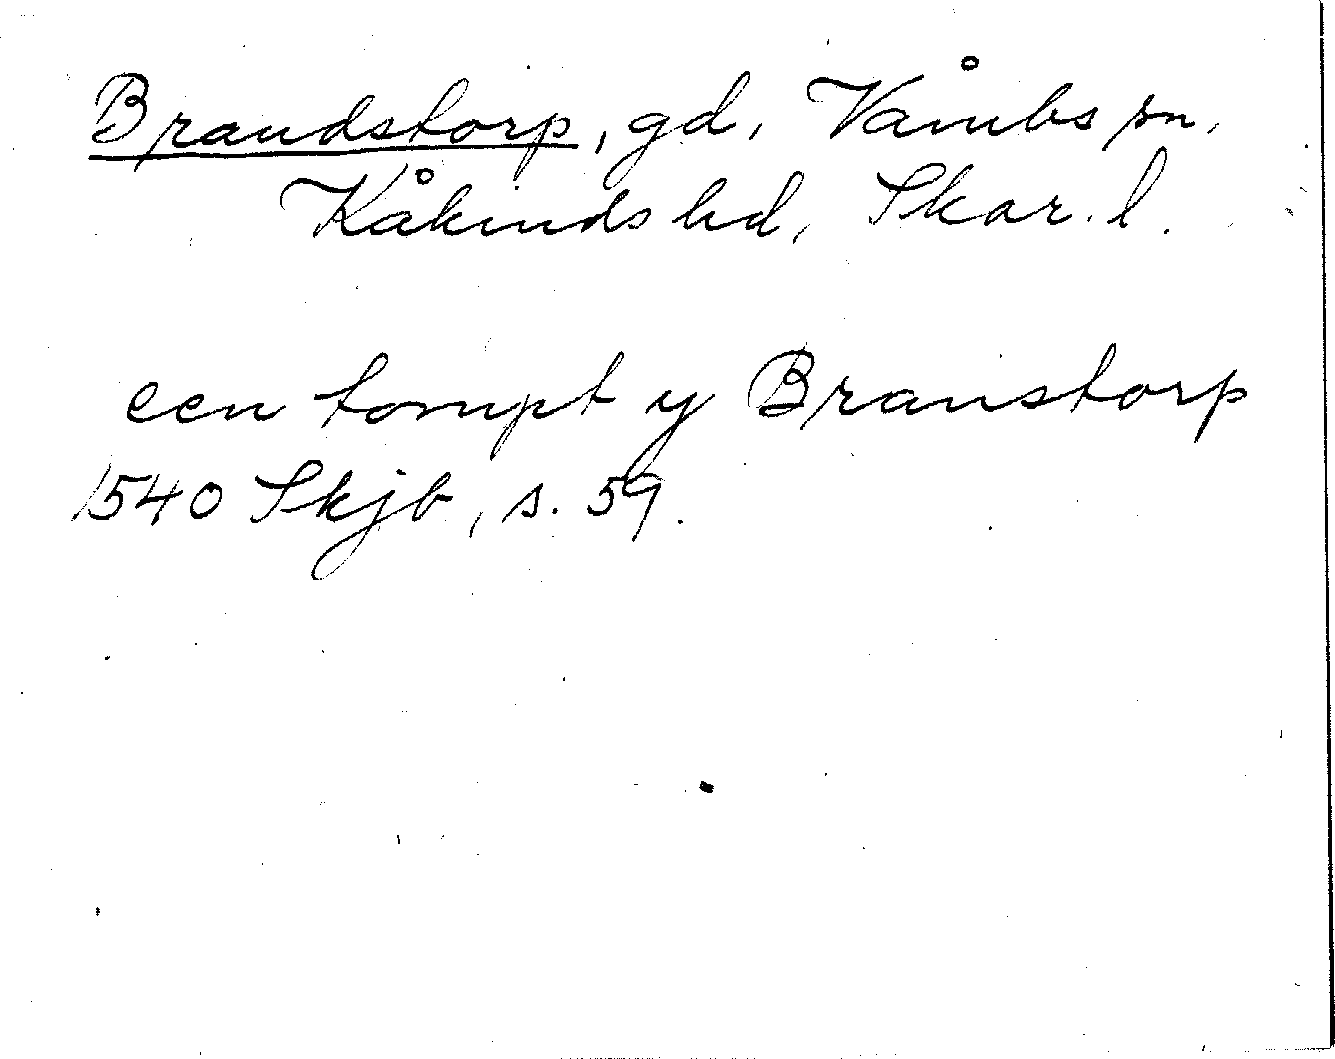 Brandstorp, gd, Våmbs sn,
Kåkinds hd, Skar. l.
een tompt y Branstorp
1540 Skjb, s. 59.